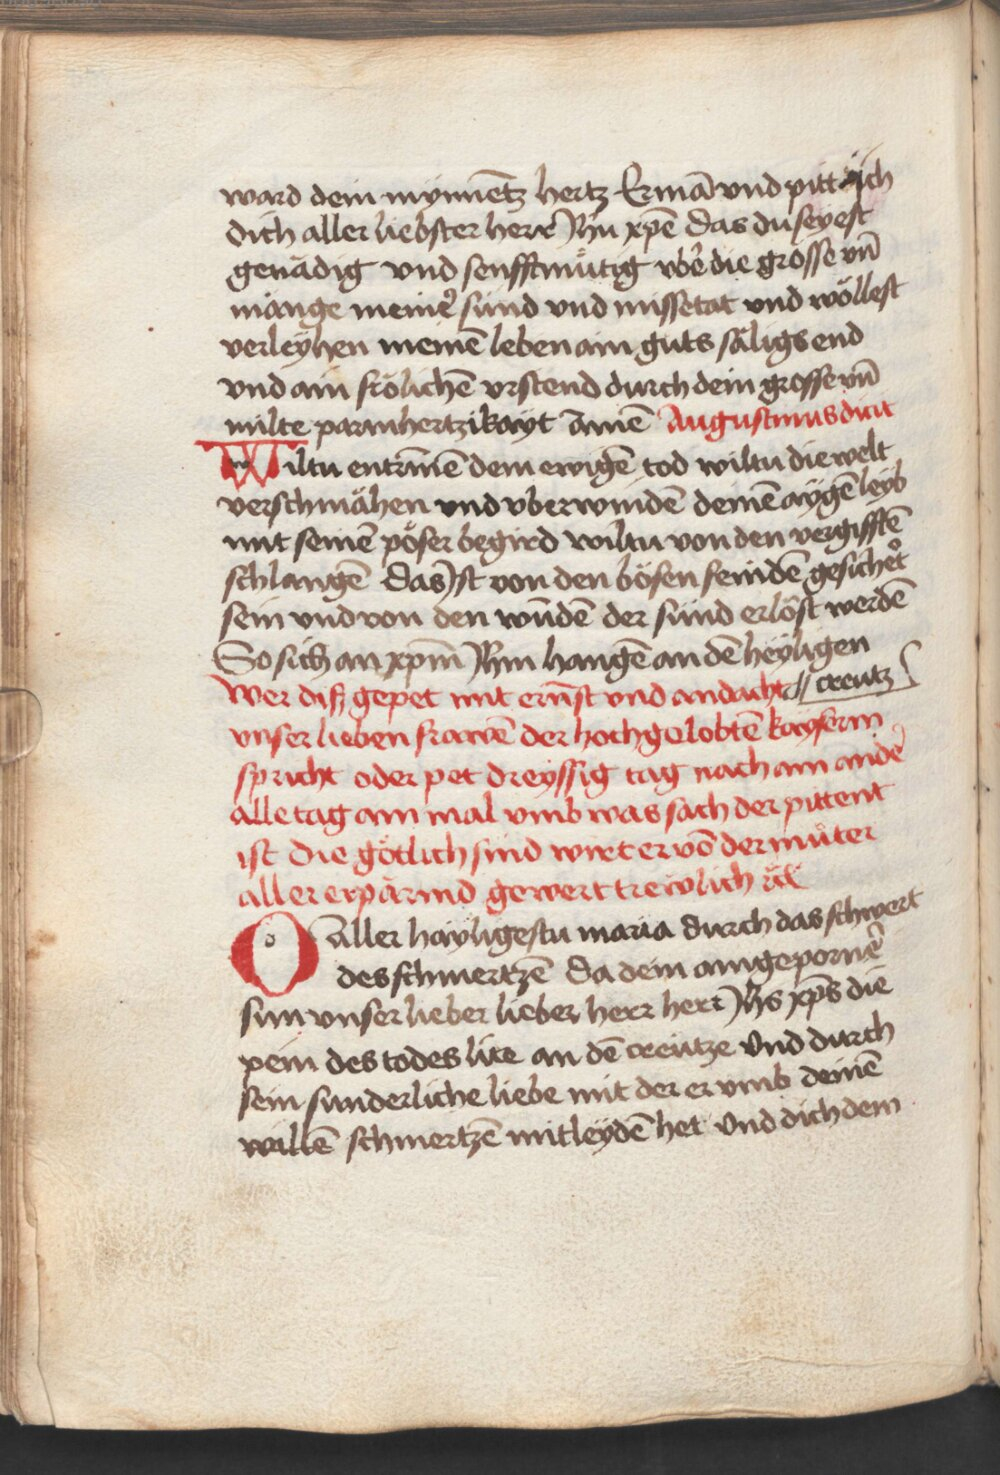 ward dein mynnētz hertz Ermā vnd pitt ich
dich aller liebster herr Jhu xpē das du seyest
genädig vnd senfftmütig vbe͛ die grosse vn̄
mänge meine͛ sünd vnd missetat vnd wöllest
verleyhen meinē leben ain guts säligs end
vnd ain frölichē vrstend durch dein grosse vn̄
milte parmhertzikayt Amē Augustinus dicit
Wiltu entrīnē dem ewigē tod wiltu die welt
verschmähen vnd vberwindē deinē aygē leyb
mit seinē pöser begird wiltu von den vergifftē
schlangē das Jst von den bösen feindē gesichert
sein vnd von den wūdē der sünd erlöst werdē
So sich an xpm̄ Jhm hangē an dē heyligen
creütz
Wer diß gepet mit ern̄st vnd andacht
vnser lieben frawē der hochgelobtē kayserin
spricht oder pet dreyssig tag nach ain ande͛
alle tag ain mal vmb was sach der pittent
ist die götlich sind wirt er vō der müter
aller erpärmd gewert trewlich
O Aller häyligestu maria durch das schwert
des schmertzē da dein aingeporne͛
sun vnser lieber lieber herr herr Jhs xp̄s die
pein des todes lite an dē creütze Vnd durch
sein sunderliche liebe mit der er vmb deinē
willē schmertzē mitleydē het Vnd dich dem